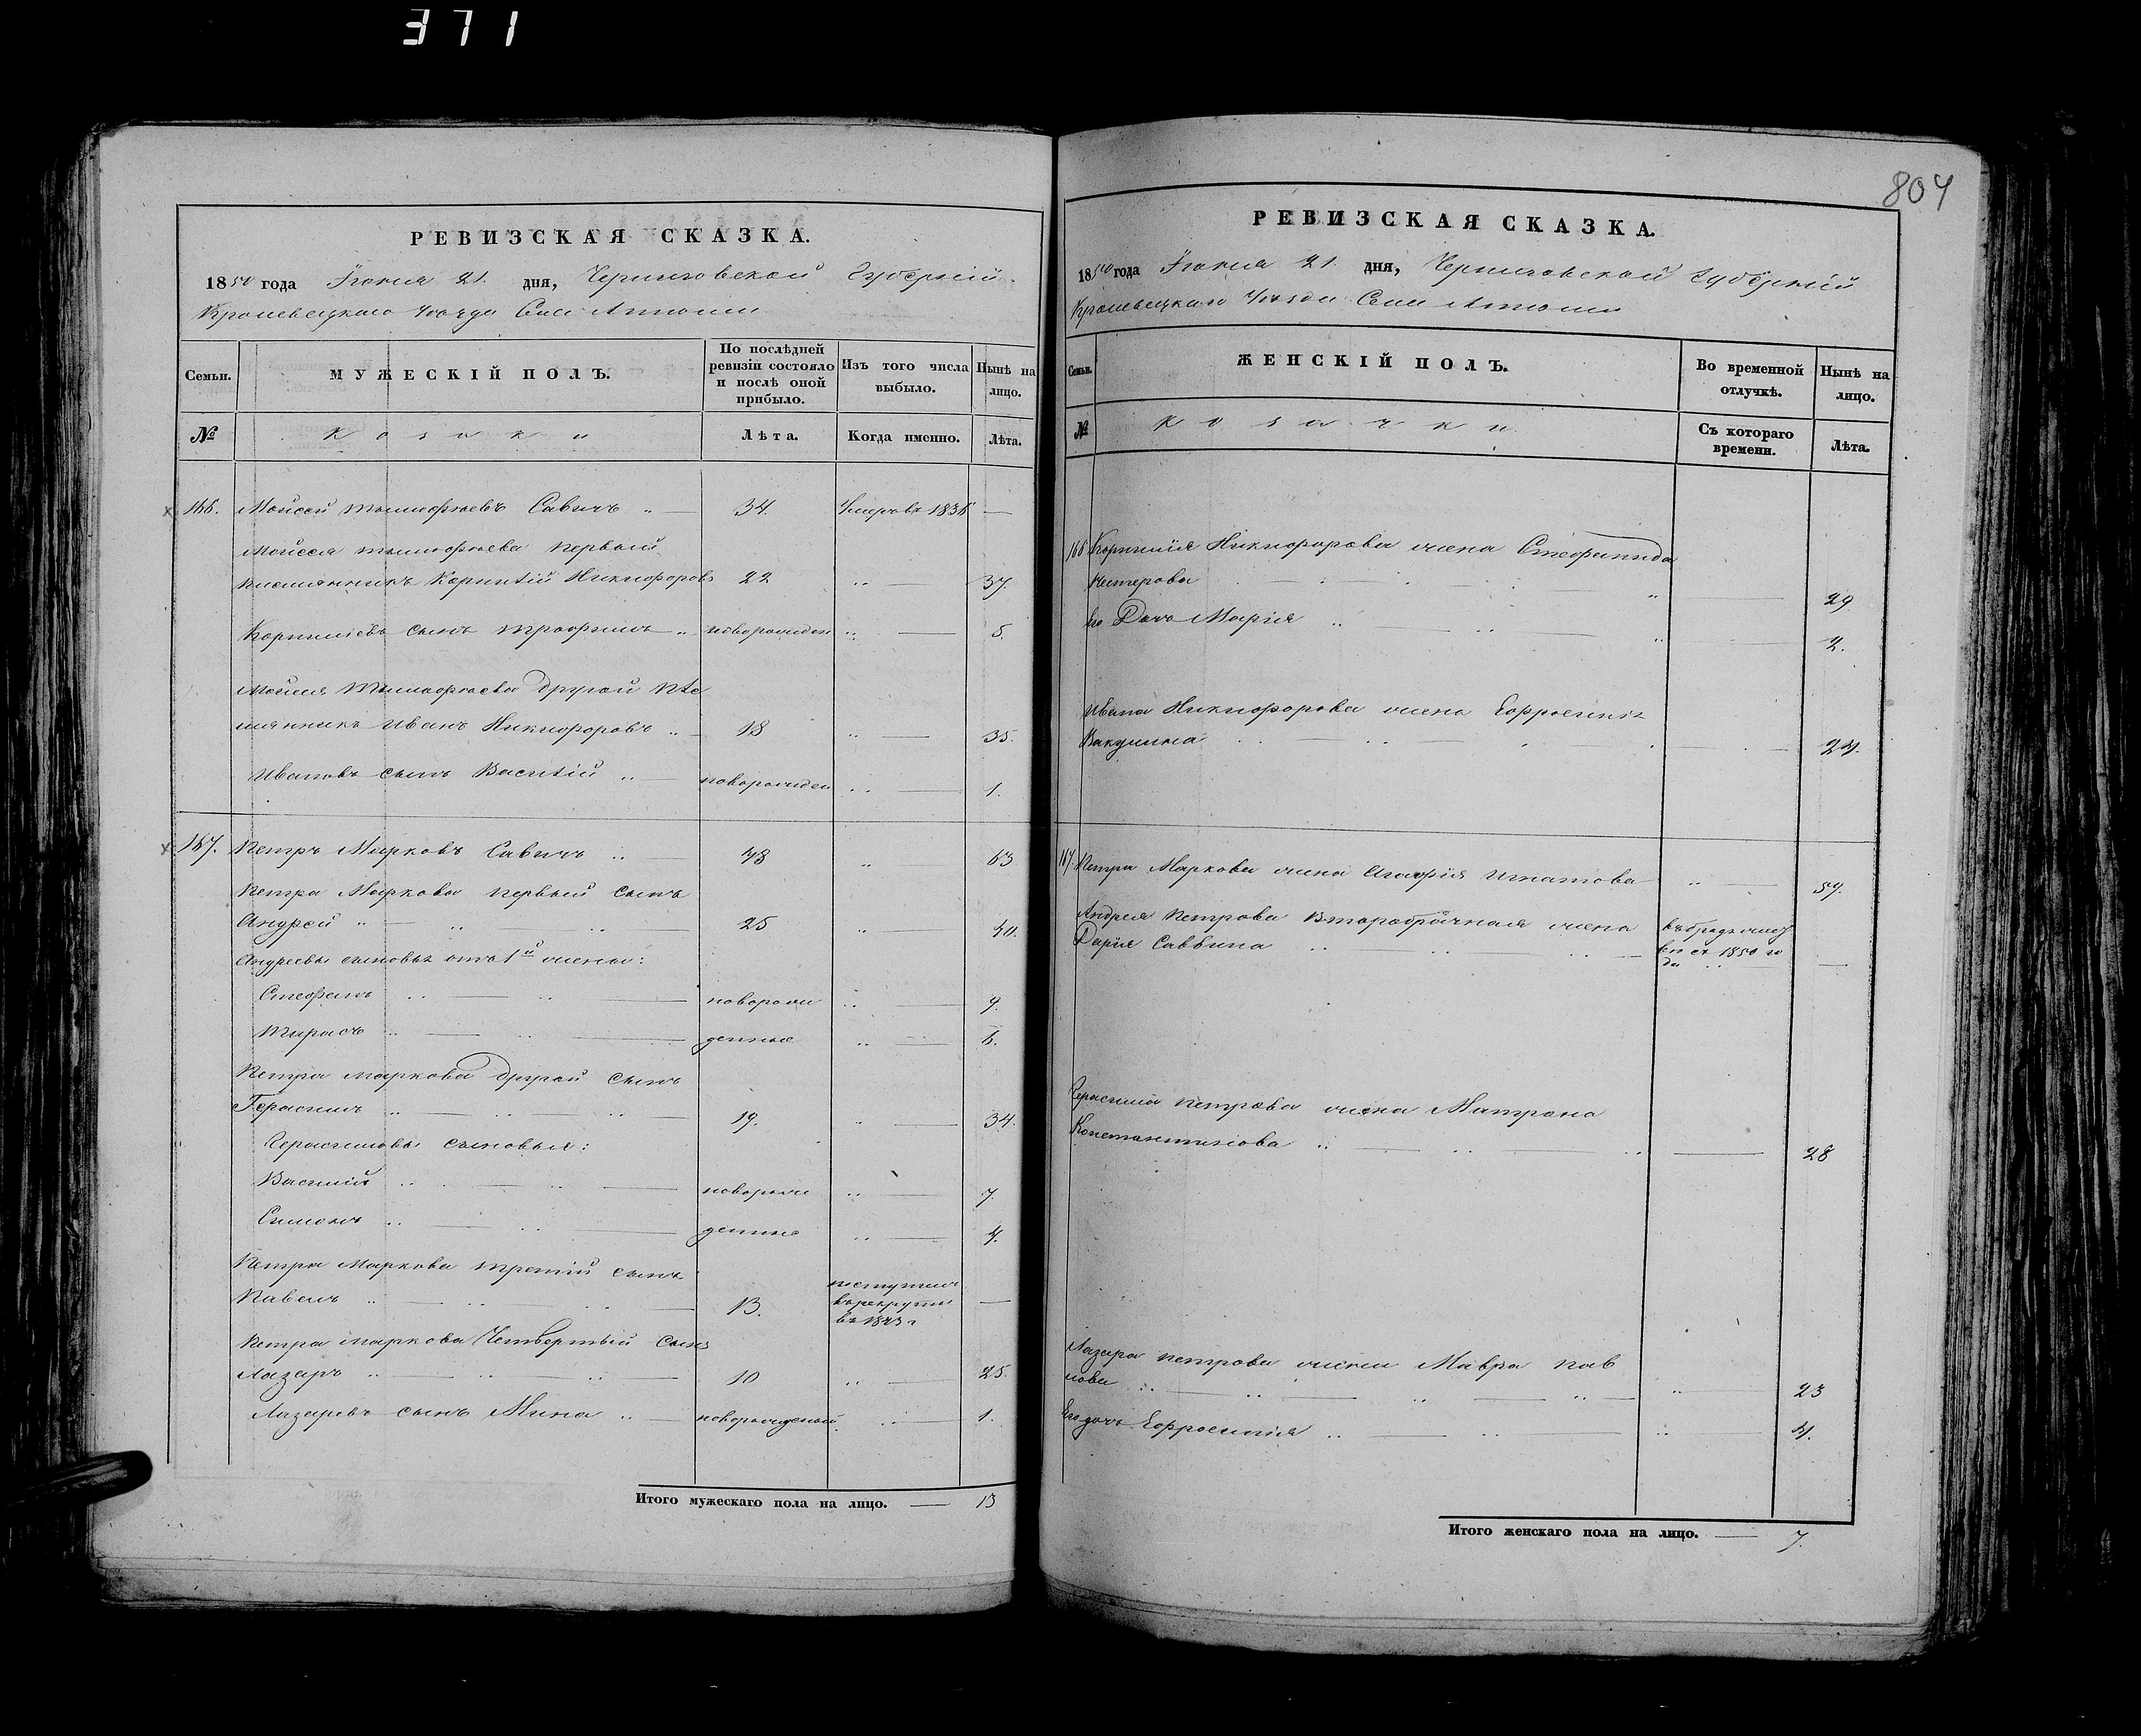 371
804
РЕВИЗСКАЯ СКАЗКА.
1850 года Іюня 21. дня, Черниговской Губерній
Кролевецкаго Уѣзда Села
Семьи.
МУЖЕСКІЙ ПОЛЪ.
По послѣдней ревизіи состояло и послѣ оной прибыло.
Изъ того числа выбыло.
Нынѣ на лицо.
№
Козаки
Лѣта.
Когда именно.
Лѣта.
166. Мойсей Тимофѣевъ Савичъ 34. Умеръ въ —
Мойсея Тимофѣева первый
племянникъ Корнилій Никифоровъ 22 37.
Корниліевъ сынъ Трофимъ новорожден 5.
Мойсея Тимофѣева другой пле
мянникъ Иванъ Никифоровъ 18 35.
Ивановъ сынъ Василій новорожден 1.
167. Петръ Марковъ Савичъ 48 63
Петра Маркова первый сынъ
Андрей 25 40.
Андреевы сыновья отъ 1й жены:
Стефанъ новорож 9.
Тарасъ денные 6.
Петра Маркова другой сынъ
Герасимъ 19. 34.
Герасимовы сыновья:
Василій новорож 7.
Симонъ денные 4.
Петра Маркова третій сынъ
Павелъ 13. поступилъ —
въ рекруты
въ 1843 г
Петра Маркова четвертый сынъ
Лазарь 10 25.
Лазаревъ сынъ Мина новорожденый 1.
Итого мужескаго пола на лицо. — 13
РЕВИЗСКАЯ СКАЗКА.
1850 года Іюня 21. дня, Черниговской Губерній
Кролевецкаго Уѣзда Села
Семьи.
ЖЕНСКІЙ ПОЛЪ.
Во временной отлучкѣ.
Нынѣ на лицо.
№
Козачки
Съ котораго времени.
Лѣта.
166 Корнилія Никифорова жена Стефанида
Нестерова 29
его Дочь Марія 2.
Ивана Никифорова жена Евфросинія
24.
167. Петра Маркова жена Агафія Игнатова 59.
Андрея Петрова второбрачная жена
Дарія Саввина 1850 го
да —
Герасима Петрова жена Матрона
Константинова 28
Лазара Петрова жена Мавра Пав
лова 23
Его дочь Евфросинія 4.
Итого женскаго пола на лицо. — 7.